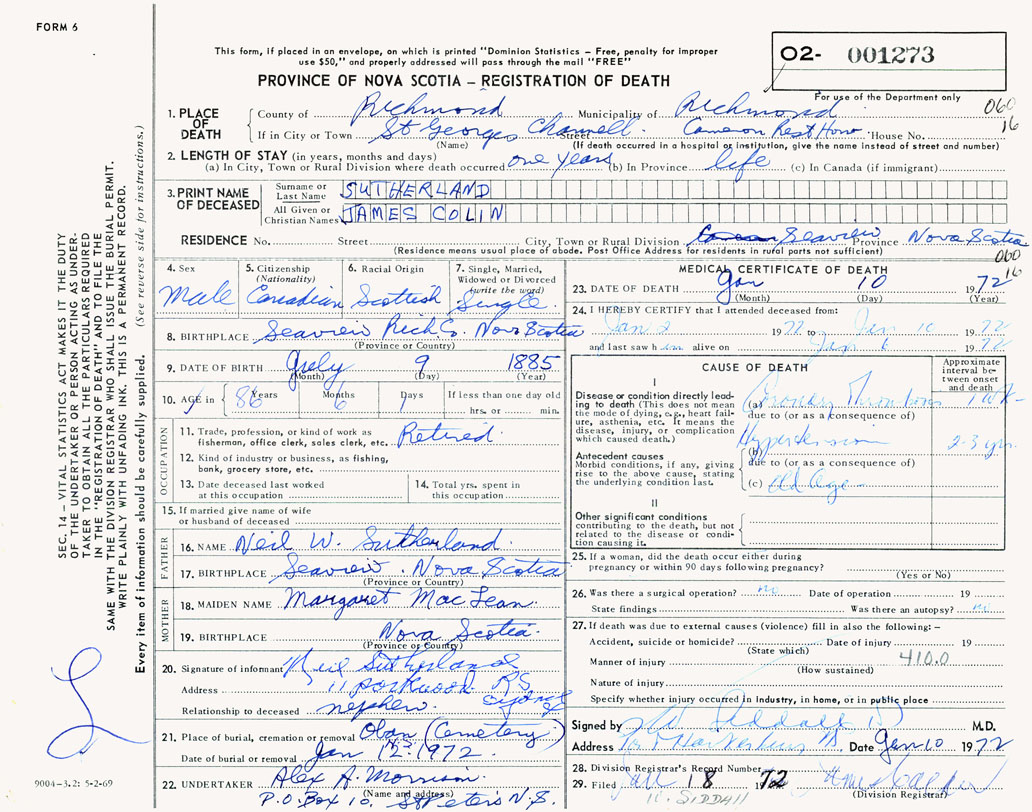 FORM 6
This form, if placed in an envelope, on which is printed "Dominion Statistics – Free, penalty for improper
use $50," and properly addressed will pass through the mail "FREE"
PROVINCE OF NOVA SCOTIA – REGISTRATION OF DEATH
O2- 001273
For use of the Department only
060
16
1. PLACE OF DEATH
County of Richmond Municipality of Richmond
If in City or Town St Georges Channell Street Cameron Rest Home House No.
(Name) (If death occurred in a hospital or institution, give the name instead of street and number)
2. LENGTH OF STAY (in years, months and days)
(a) In City, Town or Rural Division where death occurred one years (b) In Province life (c) In Canada (if immigrant)
3. PRINT NAME OF DECEASED
Surname or Last Name SUTHERLAND
All Given or Christian Names JAMES COLIN
RESIDENCE No. Street City, Town or Rural Division Seaview Province Nova Scotia
(Residence means usual place of abode. Post Office Address for residents in rural parts not sufficient)
060
16
4. Sex Male
5. Citizenship (Nationality) Canadian
6. Racial Origin Scottish
7. Single, Married, Widowed or Divorced (write the word) Single
8. BIRTHPLACE Seaview Rich Co. Nova Scotia
(Province or Country)
9. DATE OF BIRTH July 9 1885
(Month) (Day) (Year)
10. AGE in 86 Years 6 Months 1 Days If less than one day old
hrs. or min.
OCCUPATION
11. Trade, profession, or kind of work as
fisherman, office clerk, sales clerk, etc. Retired
12. Kind of industry or business, as fishing,
bank, grocery store, etc.
13. Date deceased last worked
at this occupation
14. Total yrs. spent in
this occupation
15. If married give name of wife
or husband of deceased
FATHER
16. NAME Neil W. Sutherland
17. BIRTHPLACE Seaview . Nova Scotia
(Province or Country)
MOTHER
18. MAIDEN NAME Margaret MacLean
19. BIRTHPLACE Nova Scotia
(Province or Country)
20. Signature of informant Neil Sutherland
Address 11 Sydney
Relationship to deceased nephew
21. Place of burial, cremation or removal Oban (Cemetery)
Date of burial or removal Jan 12 1972
22. UNDERTAKER Alex A. Morrison
(Name and address)
P.O. Box 10. St Peters N.S.
MEDICAL CERTIFICATE OF DEATH
23. DATE OF DEATH Jan 10 1972
(Month) (Day) (Year)
24. I HEREBY CERTIFY that I attended deceased from:
Jan 2 1972 to Jan 10 1972
and last saw him alive on Jan 6 1972
CAUSE OF DEATH
Approximate interval between onset and death
I
Disease or condition directly leading to death (This does not mean
the mode of dying, e.g., heart failure, asthenia, etc. It means the
disease, injury, or complication
which caused death.)
(a) Coronary Thrombosis 1 wk
due to (or as a consequence of)
Antecedent causes
Morbid conditions, if any, giving
rise to the above cause, stating
the underlying condition last.
(b) Hypertension 2-3 yrs.
due to (or as a consequence of)
(c) Old Age
II
Other significant conditions
contributing to the death, but not
related to the disease or condition causing it.
25. If a woman, did the death occur either during
pregnancy or within 90 days following pregnancy?
(Yes or No)
26. Was there a surgical operation? no Date of operation 19
State findings Was there an autopsy? no
27. If death was due to external causes (violence) fill in also the following: –
Accident, suicide or homicide? Date of injury 19
(State which)
Manner of injury 410.0
(How sustained)
Nature of injury
Specify whether injury occurred in Industry, in home, or in public place
Signed by Siddall M.D.
Address Port Hawkesbury NS Date Jan 10 1972
28. Division Registrar's Record Number
29. Filed Jan 18 1972
(Division Registrar)
SIDDALL
SEC. 14 – VITAL STATISTICS ACT MAKES IT THE DUTY
OF THE UNDERTAKER OR PERSON ACTING AS UNDER-
TAKER TO OBTAIN ALL THE PARTICULARS REQUIRED
IN THE "REGISTRATION OF DEATH" AND TO FILE THE
SAME WITH THE DIVISION REGISTRAR WHO SHALL ISSUE THE BURIAL PERMIT.
WRITE PLAINLY WITH UNFADING INK. THIS IS A PERMANENT RECORD.
Every item of information should be carefully supplied. (See reverse side for instructions.)
9004-3.2: 5-2-69